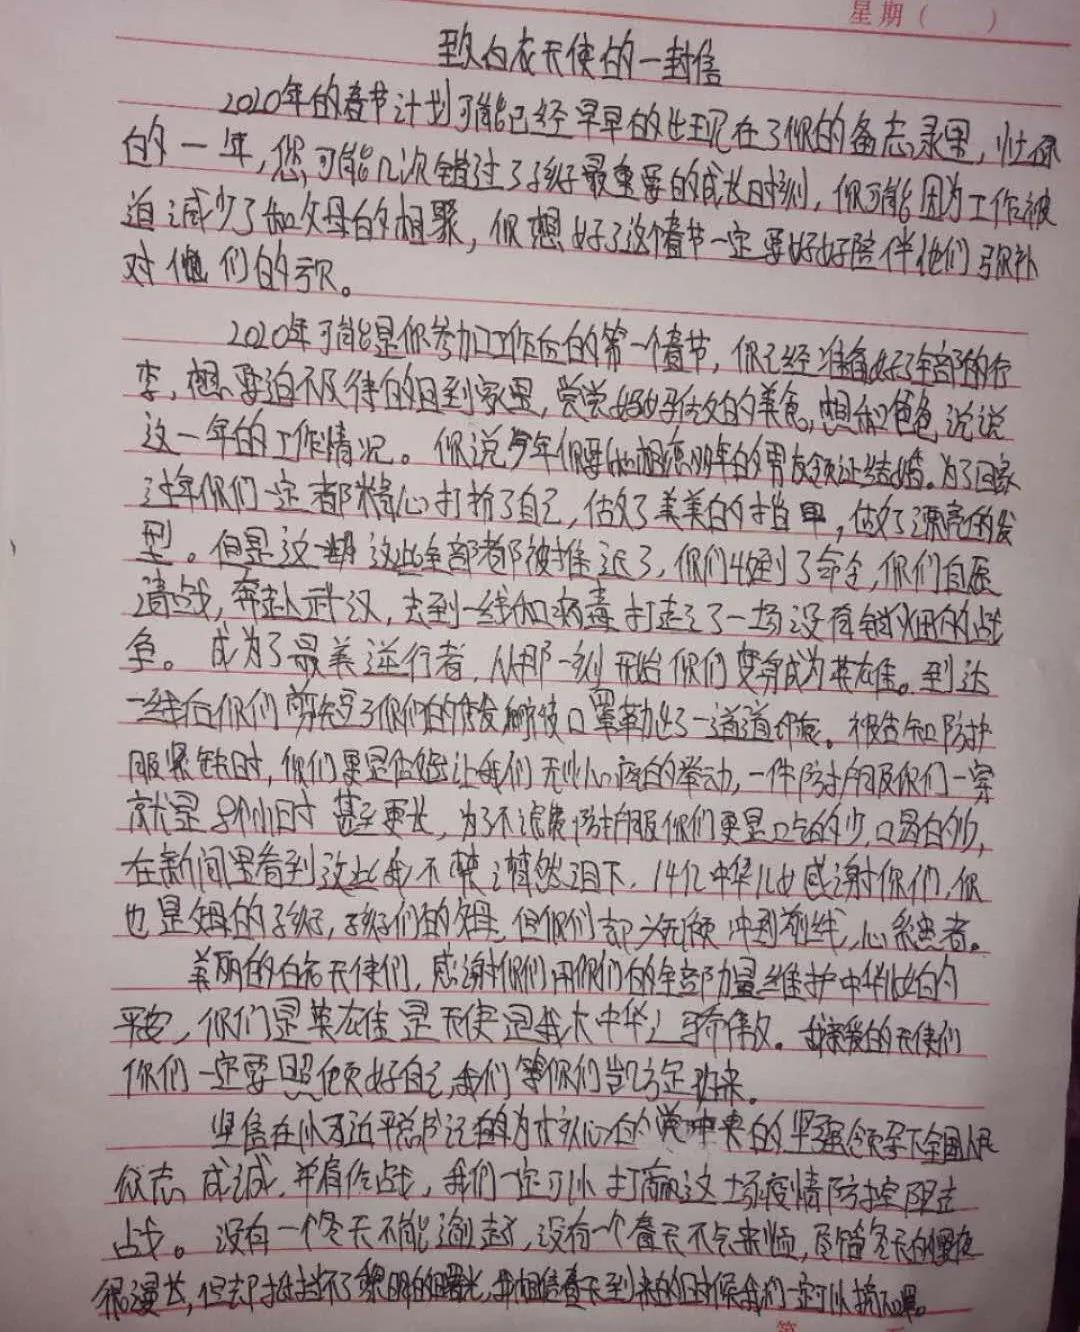 星期（    ）
致白衣天使的一封信
2020年的春节计划可能已经早早的出现在了你的备忘录里，忙碌
的一年，您可能几次错过了孩子最重要的成长时刻，你可能因为工作被
迫减少了和父母的相聚，你想好了这个春节一定要好好陪伴他们弥补
对他们的亏欠。
2020年可能是你参加工作后的第一个春节，你已经准备好了全部的行
李，想要迫不及待的回到家里，尝尝妈妈做的美食，想和爸爸说说
这一年的工作情况。你说今年你要和相恋多年的男友领证结婚。为了回家
过年你们一定都精心打扮了自己，做了美美的指甲，做了漂亮的发
型。但是这一切这些全部都被推迟了，你们收到了命令，你们自愿
请战，奔赴武汉，去到一线和病毒打起了一场没有硝烟的战
争。成为了最美逆行者，从那一刻开始你们变身成为英雄。到达
一线后你们剪短了你们的秀发 脸被口罩勒出了一道道印痕。被告知防护
服紧缺时，你们更是做出让我们无比心疼的举动，一件防护服你们一穿
就是8个小时甚至更长，为了不浪费防护服你们更是吃的少，喝的少，
在新闻里看到这些我不禁潸然泪下，14亿中华儿女感谢你们，你
也是父母的孩子，孩子们的父母，但你们却义无反顾冲到前线，心系患者。
美丽的白衣天使们，感谢你们用你们的全部力量维护中华儿女的
平安，你们是英雄是天使是我大中华之骄傲。我亲爱的天使们
你们一定要照顾好自己，我们等你们凯旋归来。
坚信在以习近平总书记为核心的党中央的坚强领导下全国人民
众志成城，并肩作战，我们一定可以打赢这场疫情防控阻击
战。没有一个冬天不能逾越，没有一个春天不会来临，尽管冬天的黑夜
很漫长，但却抵挡不了黎明的曙光，我相信春天到来的时候我们一定可以摘下口罩。
第